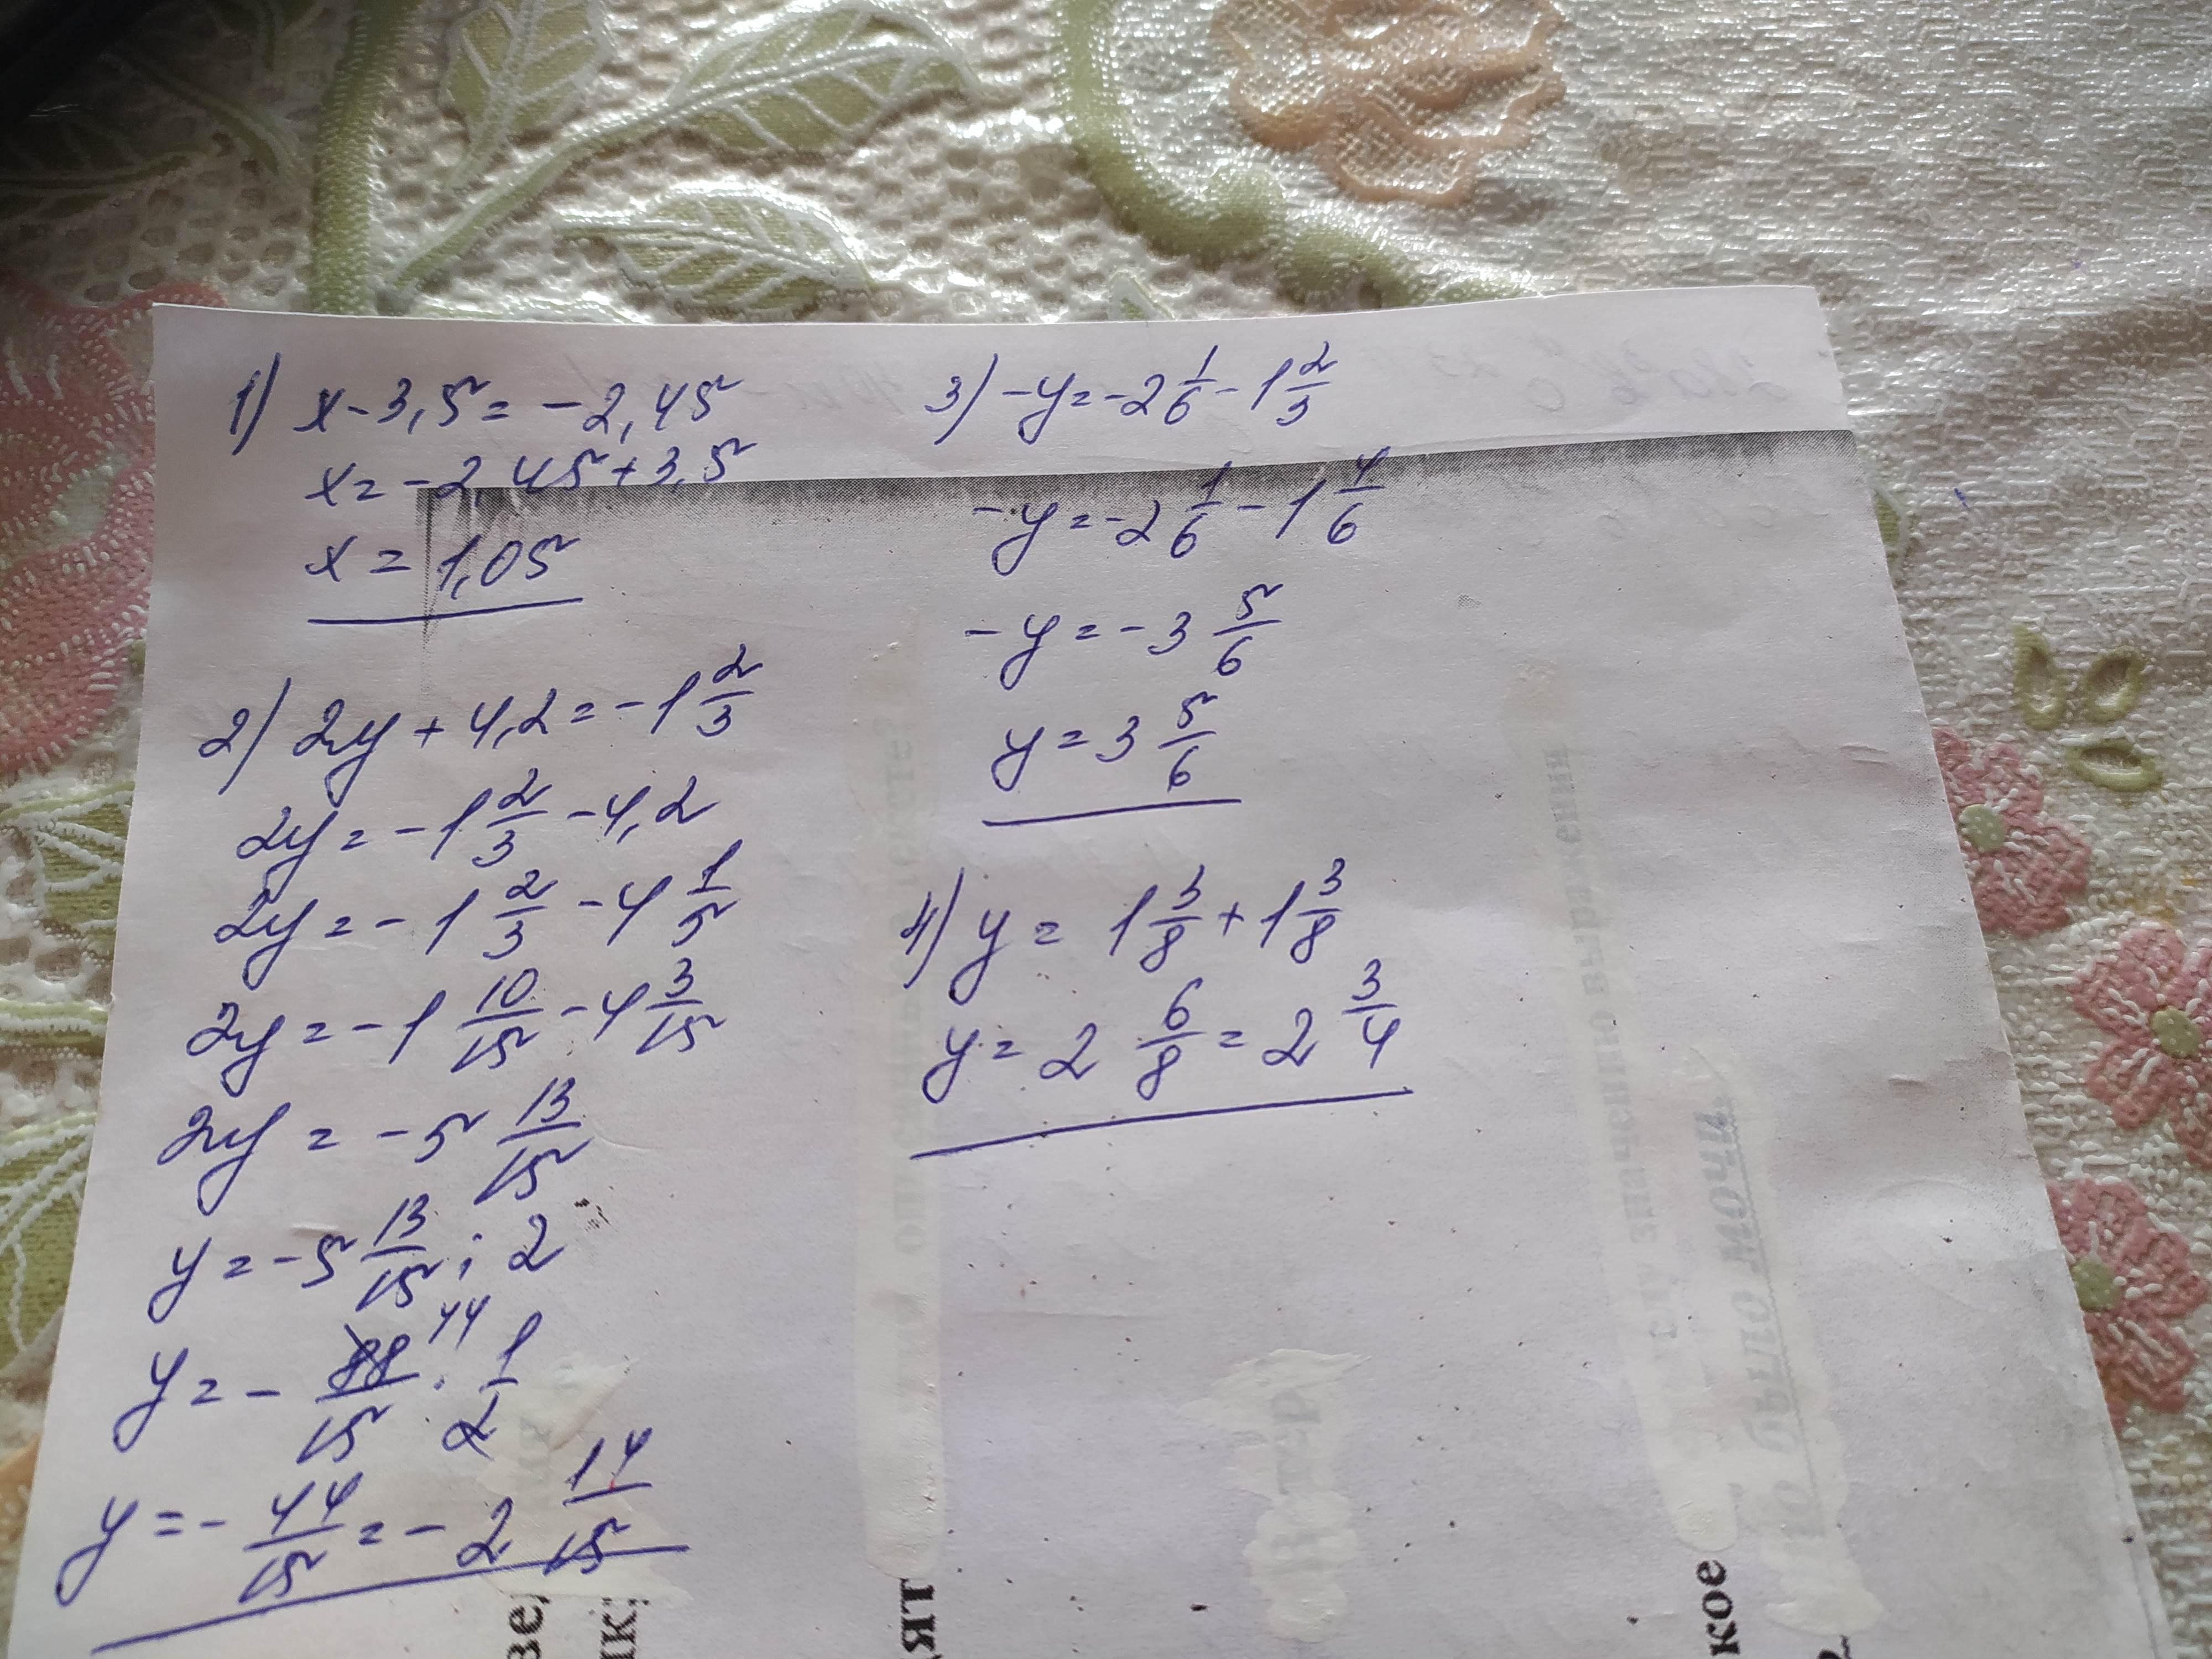 1) x - 3,5 = -2,45
x = -2,45 + 3,5
x = 1,05
2) 2y + 4,2 = -1 2/3
2y = -1 2/3 - 4,2
2y = -1 2/3 - 4 1/5
2y = -1 10/15 - 4 3/15
2y = -5 13/15
y = -5 13/15 : 2
y = - 88/15 44 · 1/2
y = - 44/15 = -2 14/15
3) -y = -2 1/6 - 1 2/3
-y = -2 1/6 - 1 4/6
-y = -3 5/6
y = 3 5/6
4) y = 1 3/8 + 1 3/8
y = 2 6/8 = 2 3/4
зе,
ик;
ят
кое